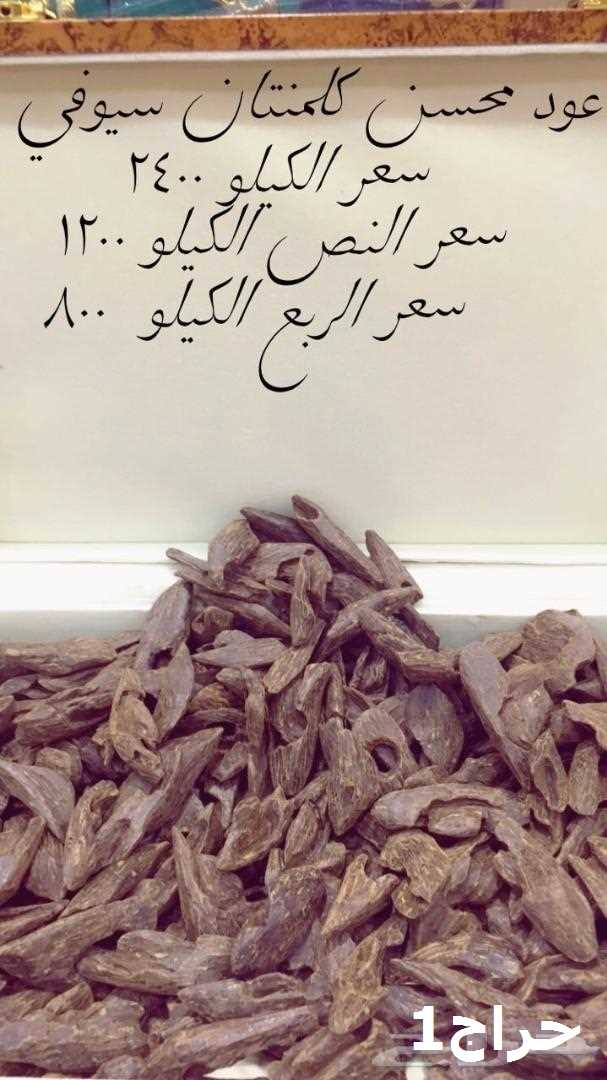 عود محسن كلمنتان سيوفي
سعر الكيلو ٢٤٠٠
سعر النص الكيلو ١٢٠٠
سعر الربع الكيلو ٨٠٠
حراج1